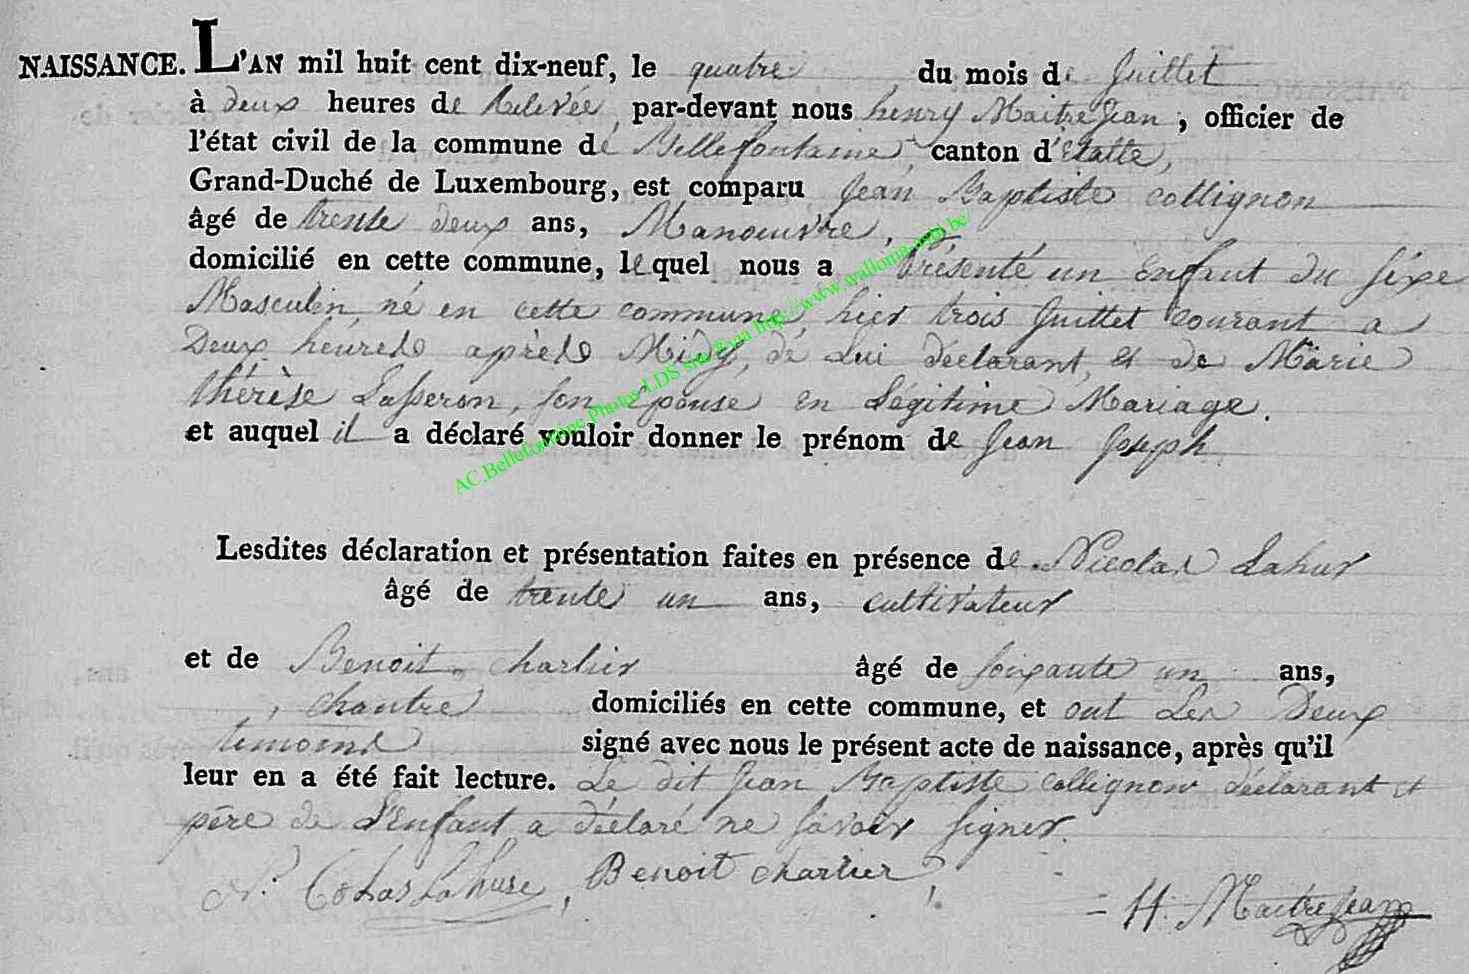 NAISSANCE. L'AN mil huit cent dix-neuf, le quatre du mois de Juillet
à deux heures de Relevée, par-devant nous henry Maitrejean, officier de
l'état civil de la commune de Bellefontaine canton d'Etalle,
Grand-Duché de Luxembourg, est comparu Jean Baptiste collignon
âgé de trente deux ans, Manoeuvre,
domicilié en cette commune, lequel nous a Présenté un Enfant du sexe
Masculin, né en cette commune, hier trois Juillet courant a
Deux heures après Midy, de Lui déclarant, et de Marie
thérèse Lasseron, son Epouse en Légitime Mariage.
et auquel il a déclaré vouloir donner le prénom de Jean Joseph
AC.Bellefontaine Photos LDS
Lesdites déclaration et présentation faites en présence de Nicolas Lahur
âgé de trente un ans, cultivateur
et de Benoit charlier âgé de soixante un ans,
, chantre domiciliés en cette commune, et ont Les Deux
témoins signé avec nous le présent acte de naissance, après qu'il
leur en a été fait lecture. Le dit Jean Baptiste collignon déclarant et
père de L'Enfant a déclaré ne savoir signer.
N. Colas Lahure, Benoit charlier
H. Maitrejean